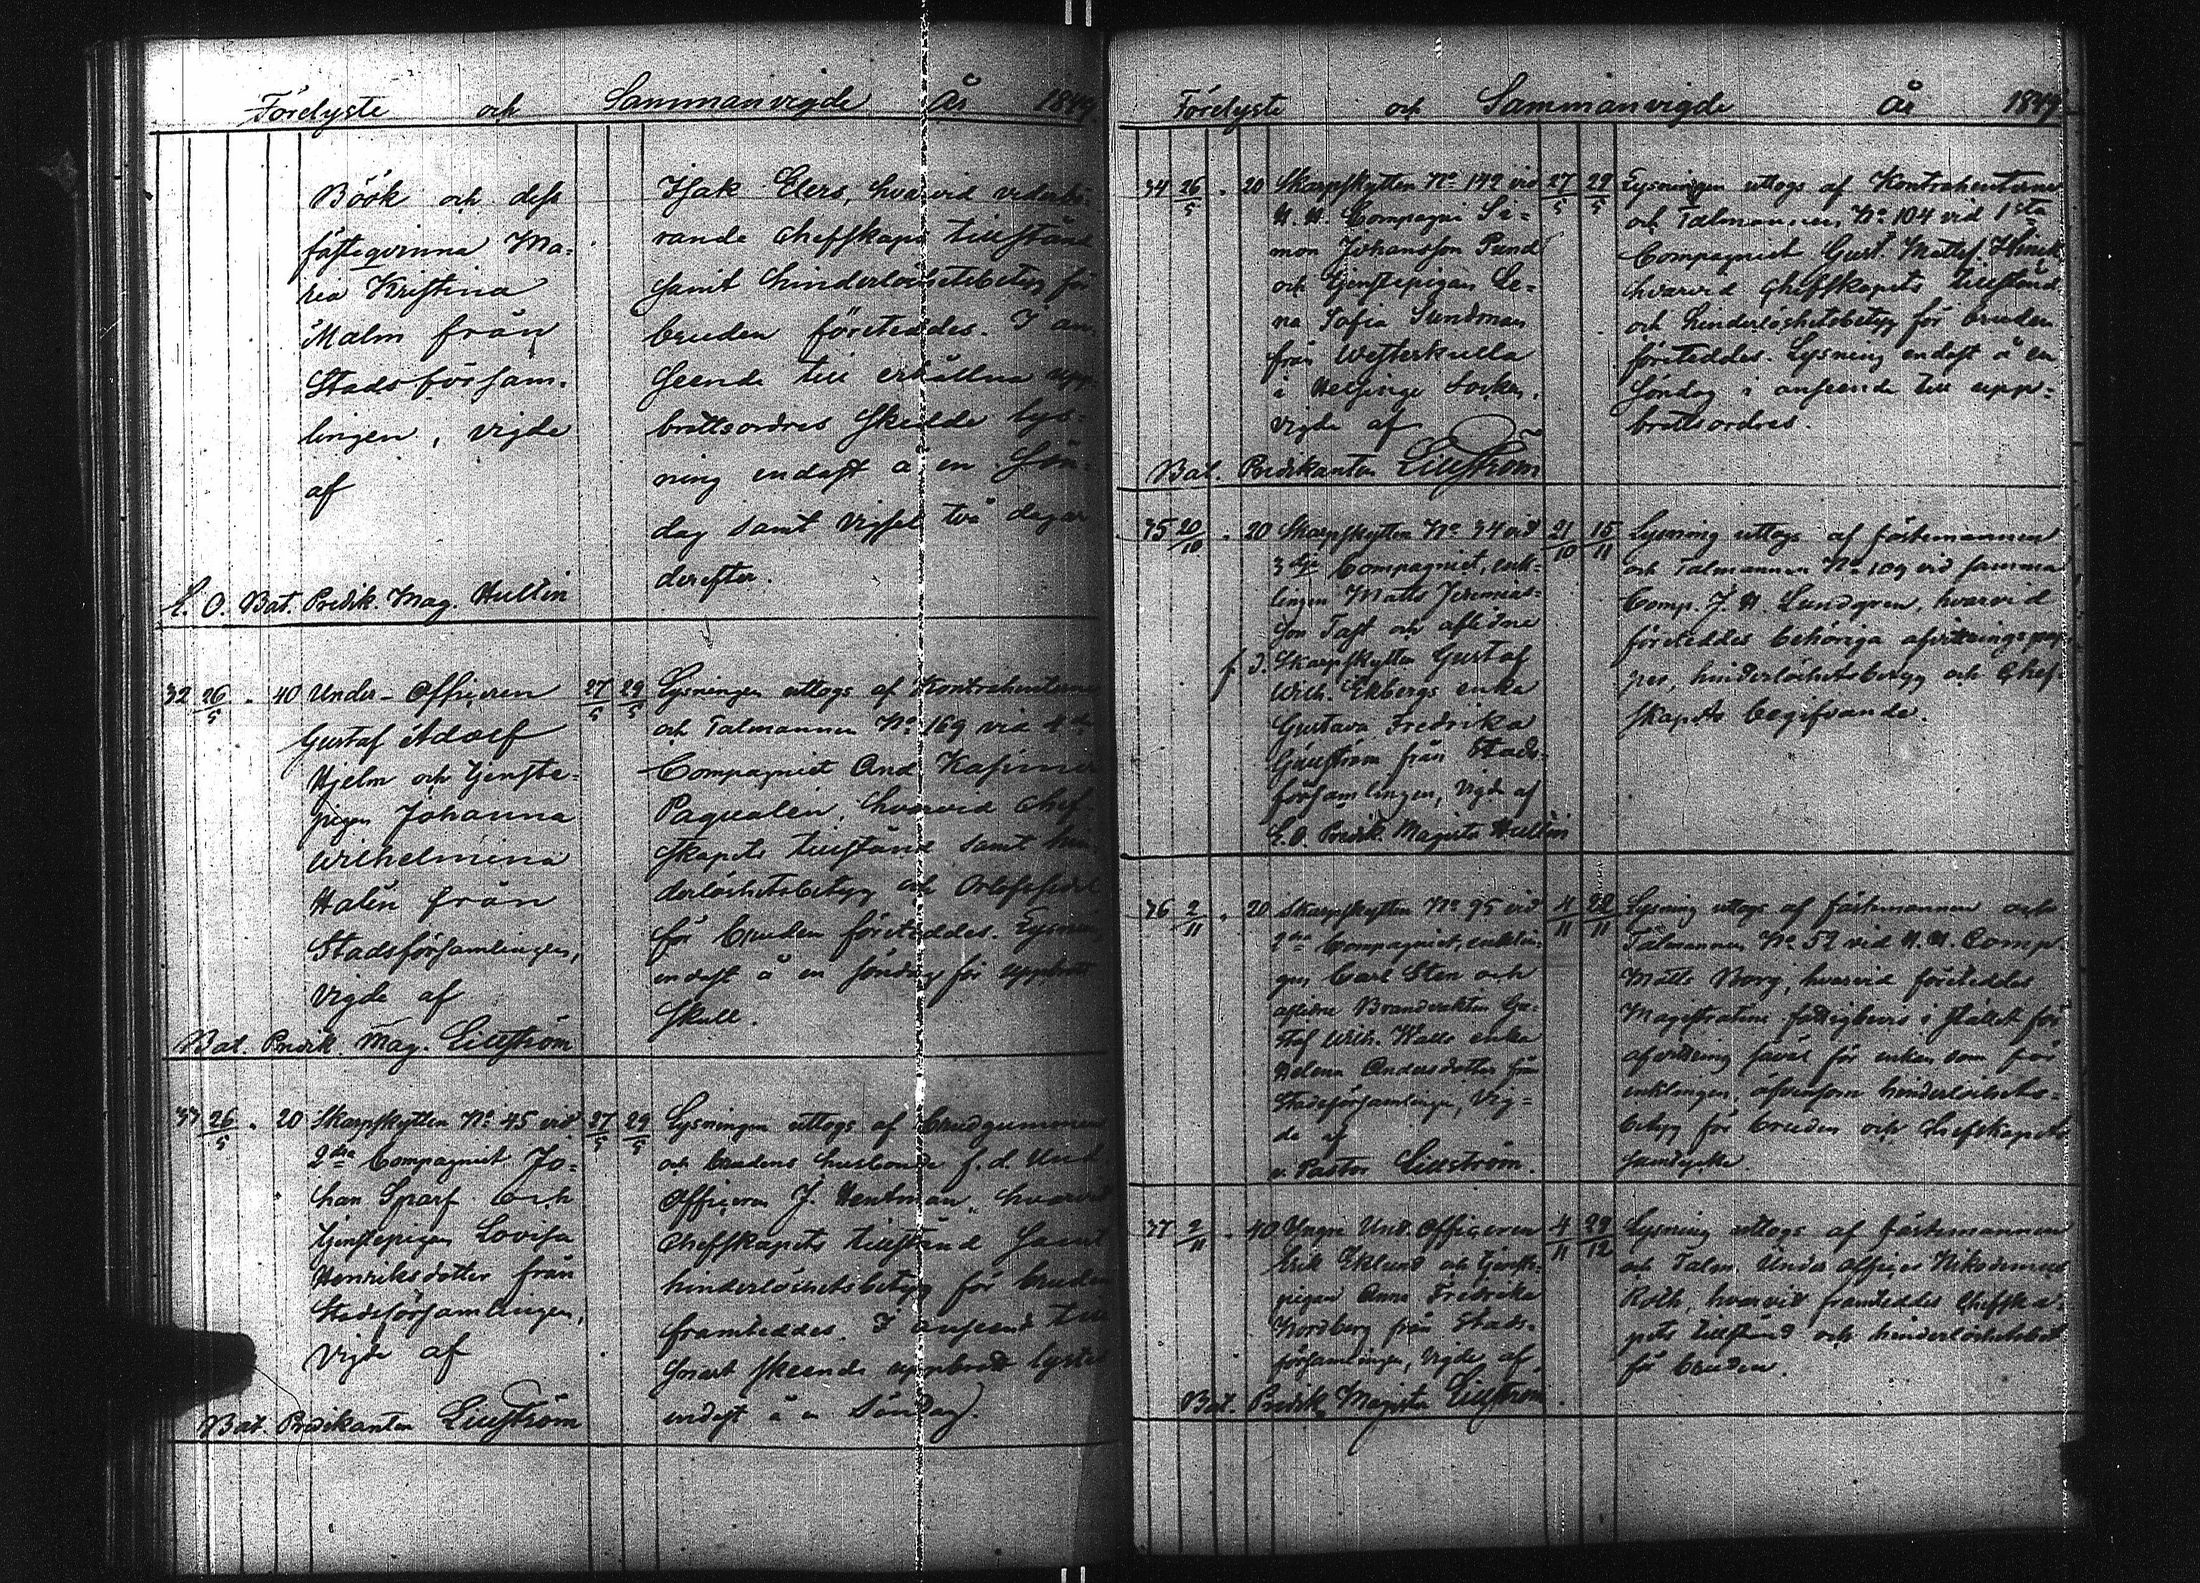 Förelyste och Sammanvigde År 1849.
Böök och dess
fästeqvinna Ma-
ria Kristina
Malm från
Stadsförsam-
lingen, vigde
af
E. O. Bat. Predik. Mag. Hultin
Isak Elers, hvarvid vederbö-
rande Chefskaps tillstånd
samt hinderlöshetsbetyg för
bruden företeddes. I an-
seende till erhållna upp-
brottsordres skedde lys-
ning endast å en Sön-
dag samt vigsel två dagar
derefter.
32 26/5 . 40 Under-Officeren 27/5 29/5
Gustaf Adolf
Hjelm och Tjenste-
pigan Johanna
Wilhelmina
Halén från
Stadsförsamlingen,
vigde af
Bat. Predik. Mag. Lillström
Lysningen uttogs af Kontrahenterne
och Talmannen No 169 vid 4de
Compagniet And. Kasimir
hvarvid Chef-
skapets tillstånd samt hin-
derlöshetsbetyg och Orlofssedel
för bruden företeddes. Lysning
endast å en Söndag för uppbrott
skull.
33 26/5 . 20 Skarpskytten No 45 vid 27/5 29/5
2dra Compagniet Jo-
han Sparf och
Tjenstepigan Lovisa
Henriksdotter från
Stadsförsamlingen,
vigde af
Bat. Predikanten Lillström
Lysningen uttogs af brudgummen
och brudens husbonde f.d. Und.
Officeren J. Hentman, hvarvid
Chefskapets tillstånd samt
hinderlöshetsbetyg för bruden
framteddes. I anseende till
snart skeende uppbrott lystes
endast å en Söndag.
Förelyste och Sammanvigde År 1849
34 26/5 . 20 Skarpskytten No 142 vid 27/5 29/5
U. U. Compagni Si-
mon Johansson Pund
och Tjenstepigan Le-
na Sofia Sundman
från Westerkulla
i Helsinge Socken,
vigde af
Bat. Predikanten Lillström
Lysningen uttogs af Kontrahenterne
och Talmannen No 104 vid 1sta
Compagniet Gust. Matts.
hvarvid Chefskapets tillstånd
och hinderlöshetsbetyg för bruden
företeddes. Lysning endast å en
Söndag i anseende till upp-
brottsordres.
35 20/10 . 20 Skarpskytten No 94 vid 21/10 15/11
3dje Compagniet, enk-
lingen Matts Jeremias-
son Tast och aflidne
f. d. Skarpskytten Gustaf
Wilh. Ekbergs enka
Gustava Fredrika
från Stads-
församlingen, vigde af
E. O. Predik. Magister Hultin
Lysning uttogs af fästemannen
och Talmannen No 109 vid samma
Comp. J. H. Lundqren, hvarvid
företeddes behöriga afvittringspap-
per, hinderlöshetsbetyg och Chef-
skapets begifvande.
36 2/11 . 20 Skarpskytten No 95 vid 4/11 28/11
2dra Compagniet, enklin-
gen Carl Sten och
aflidne Brandvakten Gu-
staf Wilh. Walls enka
Helena Andersdotter från
Stadsförsamlingen, vig-
de af
v. Pastor Lillström.
Lysning uttogs af fästemannen och
Talmannen No 52 vid U. U. Comp.
Matts Borg, hvarvid företeddes
Magistratens fattigbevis i stället för
afvittring såväl för enkan som för
enklingen, äfvensom hinderlöshets-
betyg för bruden och Chefskapets
samtycke.
37 2/11 . 40 Yngre Und. Officeren 4/11 29/12
Erik Eklund och Tjenste-
pigan Anna Fredrika
Nordberg från Stads-
församlingen, vigde af
Bat. Predik. Magister Lillström.
Lysning uttogs af fästemannen
och Talm. Under Officer Nikodemus
Roth, hvarvid framteddes Chefska-
pets tillstånd och hinderlöshetsbet.
för bruden.